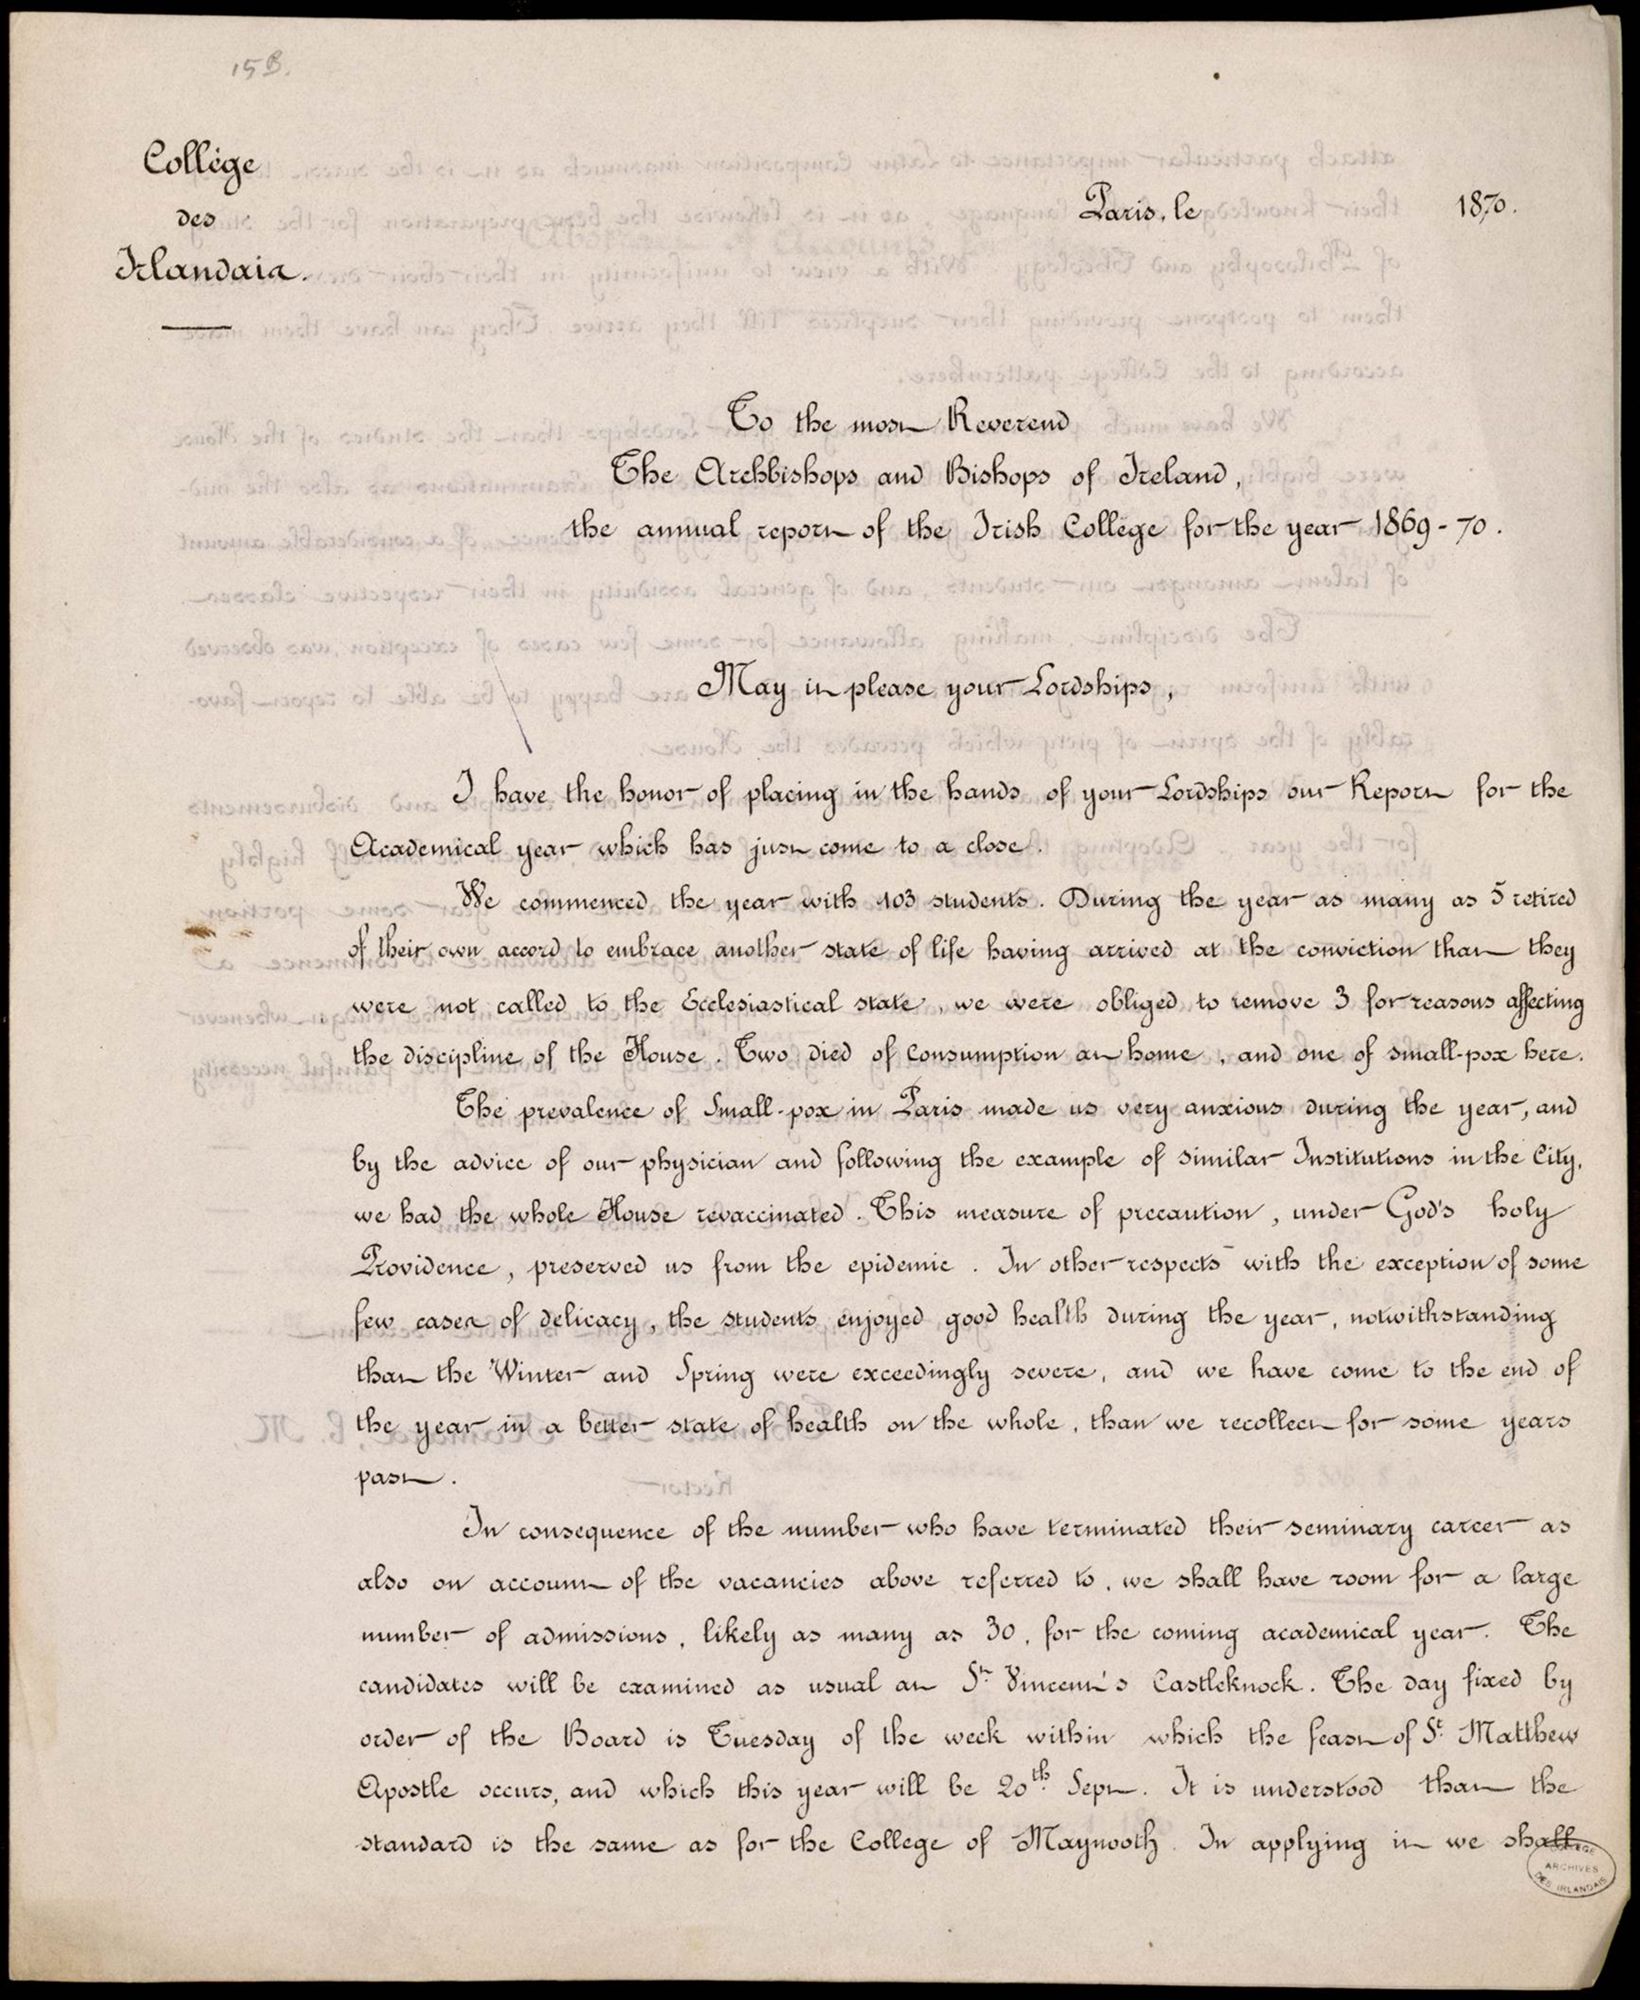 15B.
Collège
des
Irlandais.
Paris, le 1870.
To the most Reverend
The Archbishops and Bishops of Ireland,
the annual report of the Irish College for the year 1869-70.
May it please your Lordships,
I have the honor of placing in the hands of your Lordships our Report for the
Academical year which has just come to a close.
We commenced the year with 103 students. During the year as many as 5 retired
of their own accord to embrace another state of life having arrived at the conviction that they
were not called to the Ecclesiastical state, we were obliged to remove 3 for reasons affecting
the discipline of the House. Two died of Consumption at home, and one of small-pox here.
The prevalence of Small-pox in Paris made us very anxious during the year, and
by the advice of our physician and following the example of similar Institutions in the City,
we had the whole House revaccinated. This measure of precaution, under God's holy
Providence, preserved us from the epidemic. In other respects with the exception of some
few cases of delicacy, the students enjoyed good health during the year, notwithstanding
that the Winter and Spring were exceedingly severe, and we have come to the end of
the year in a better state of health on the whole, than we recollect for some years
past.
In consequence of the number who have terminated their seminary career as
also on account of the vacancies above referred to, we shall have room for a large
number of admissions, likely as many as 30, for the coming academical year. The
candidates will be examined as usual at St. Vincent's Castleknock. The day fixed by
order of the Board is Tuesday of the week within which the feast of St. Matthew
Apostle occurs, and which this year will be 20th. Sept. It is understood that the
standard is the same as for the College of Maynooth. In applying it we shall
COLLEGE
ARCHIVES
DES IRLANDAIS